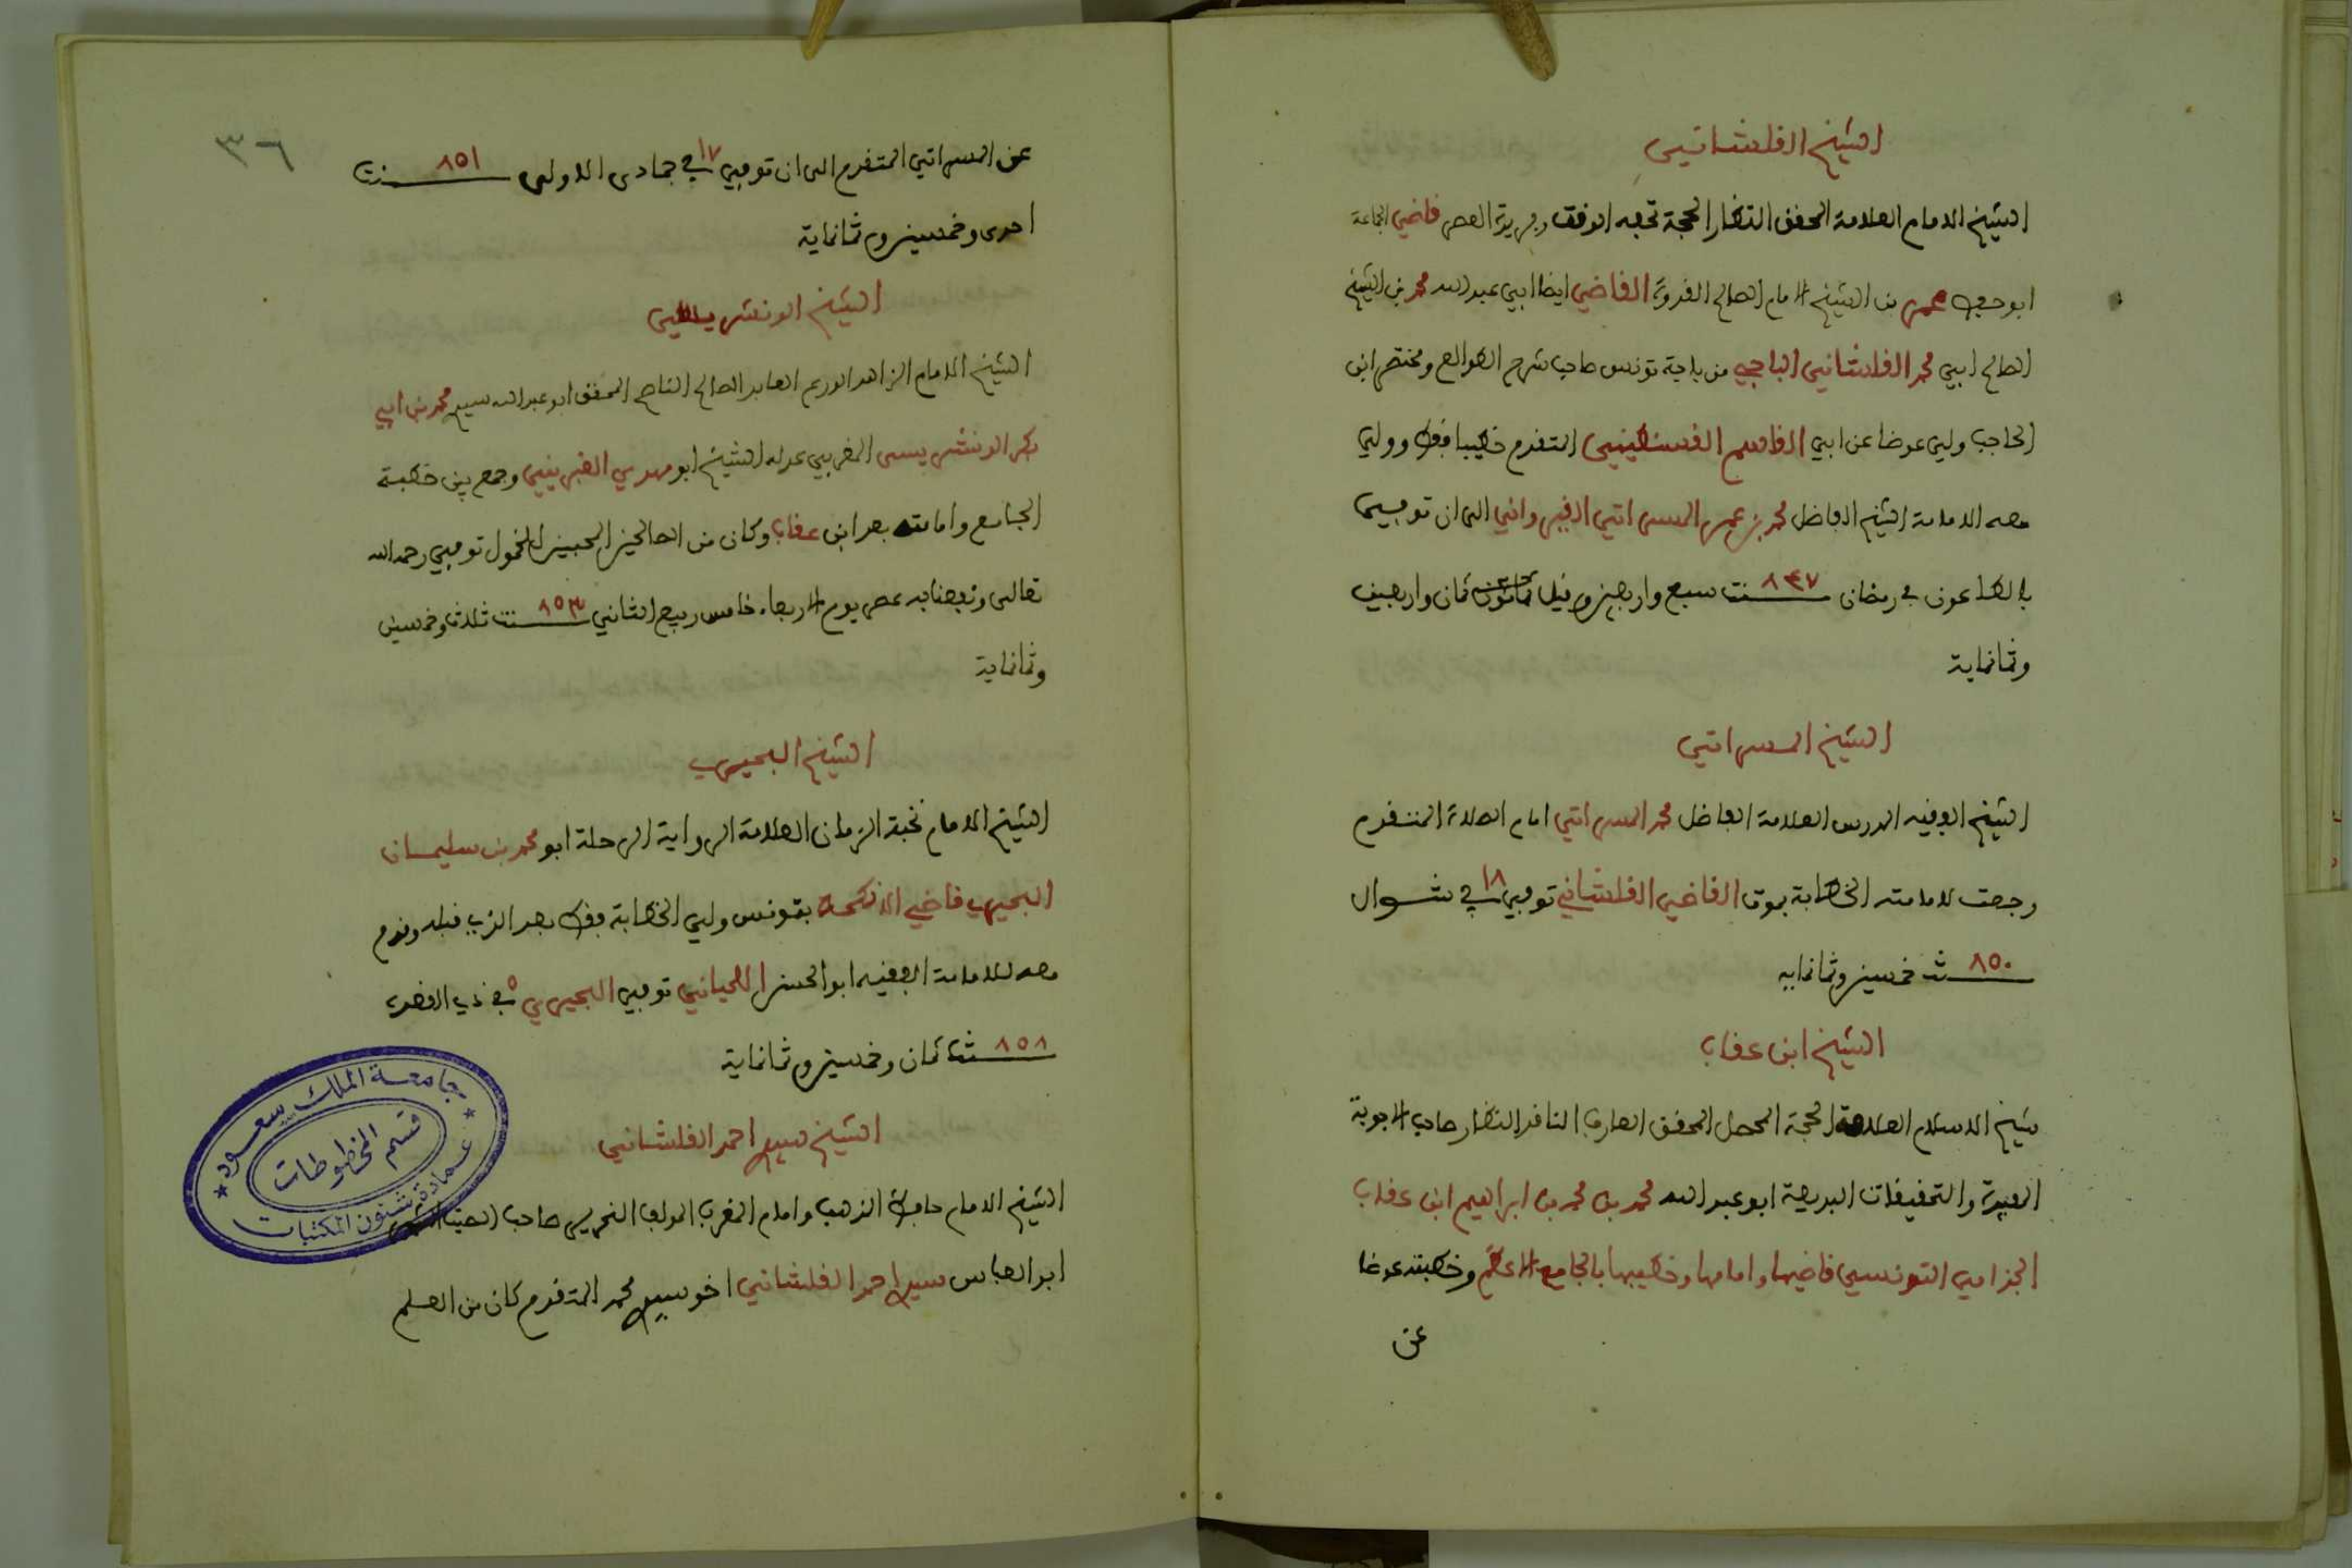 الشيخ القلشاني
الشيخ الامام العلامة المحقق النظار الحجة تحفة الوقت وفريدة العصر قاضي الجماعة
ابو حفص عمر بن الشيخ الامام الصالح القدوة القاضي ايضا ابي عبد الله محمد بن الشيخ
الصالح ابي محمد القلشاني الباجي من باجة تونس صاحب شرح الطوالع ومختصر ابن
الحاجب ولي عوضا عن ابي القاسم القسنطيني المتقدم خطيبا فقط وولي
معه الامامة الشيخ الفاضل محمد بن عمر المسراتي القيرواني الى ان توفي
بالطاعون في رمضان ٨٤٧ سنة سبع واربعين وقيل ثمان واربعين
وثمانماية
الشيخ المسراتي
الشيخ الفقيه المدرس العلامة الفاضل محمد المسراتي امام الصلاة المتقدم
رجعت لامامته الخطابة بموت القاضي القلشاني توفي ١٨ في شوال
٨٥٠ سنة خمسين وثمانمايه
الشيخ ابن عقاب
شيخ الاسلام العلامة الحجة المحصل المحقق العارف الناقد النظار صاحب الاجوبة
المفيدة والتحقيقات البديعة ابو عبد الله محمد بن محمد بن ابراهيم ابن عقاب
الجذامي التونسي قاضيها وامامها وخطيبها بالجامع الاعظم وخطبته عوضا
عن
٣٦
عن المسراتي المتقدم الى ان توفي ١٧ في جمادى الاولى ٨٥١ سنة
احدى وخمسين وثمانماية
الشيخ الونشريسي
الشيخ الامام الزاهد الورع العابد الصالح الناصح المحقق ابو عبد الله سيدي محمد بن ابي
بكر الونشريسي المغربي عدله الشيخ ابو مهدي الغبريني وجمع بين خطبة
الجامع وامامته بعد ابن عقاب وكان من الصالحين المحبين للخمول توفي رحمه الله
تعالى ونفعنا به عصر يوم الاربعاء خامس ربيع الثاني ٨٥٣ سنة ثلاث وخمسين
وثمانماية
الشيخ البحيري
الشيخ الامام نخبة الزمان العلامة الرواية الرحلة ابو محمد بن سليمان
البحيري قاضي الانكحة بتونس ولي الخطابة فقط بعد الذي قبله وقدم
معه للامامة الفقيه ابو الحسن اللحياني توفي البحيري ٥ في ذي القعدة
٨٥٨ سنة ثمان وخمسين وثمانماية
الشيخ سيدي احمد القلشاني
الشيخ الامام حافظ المذهب وامام المغرب المولف النحرير صاحب
ابو العباس سيدي احمد القلشاني اخو سيدي محمد المتقدم كان من العلم
جامعة الملك سعود
قسم المخطوطات
عمادة شئون المكتبات